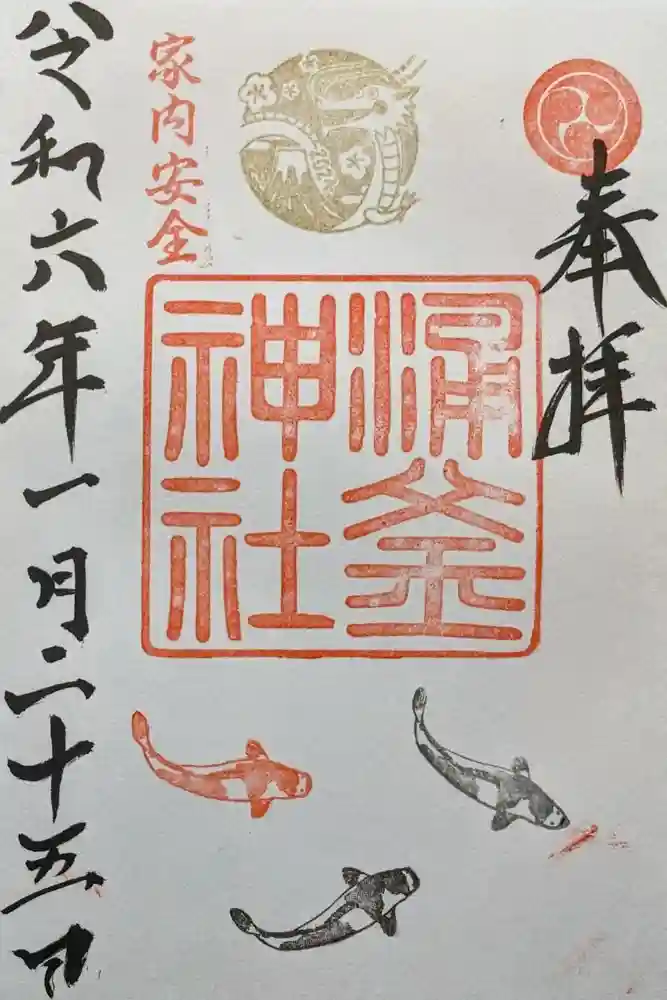 奉拝
涌釜
神社
家内安全
令和六年一月二十五日